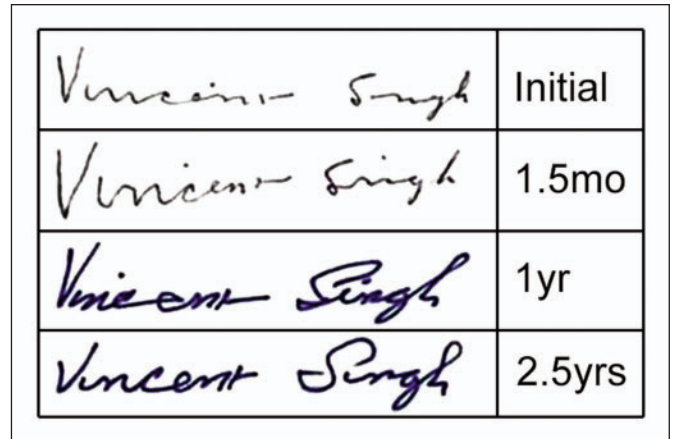 Vincent Singh Initial
Vincent Singh 1.5mo
Vincent Singh 1yr
Vincent Singh 2.5yrs